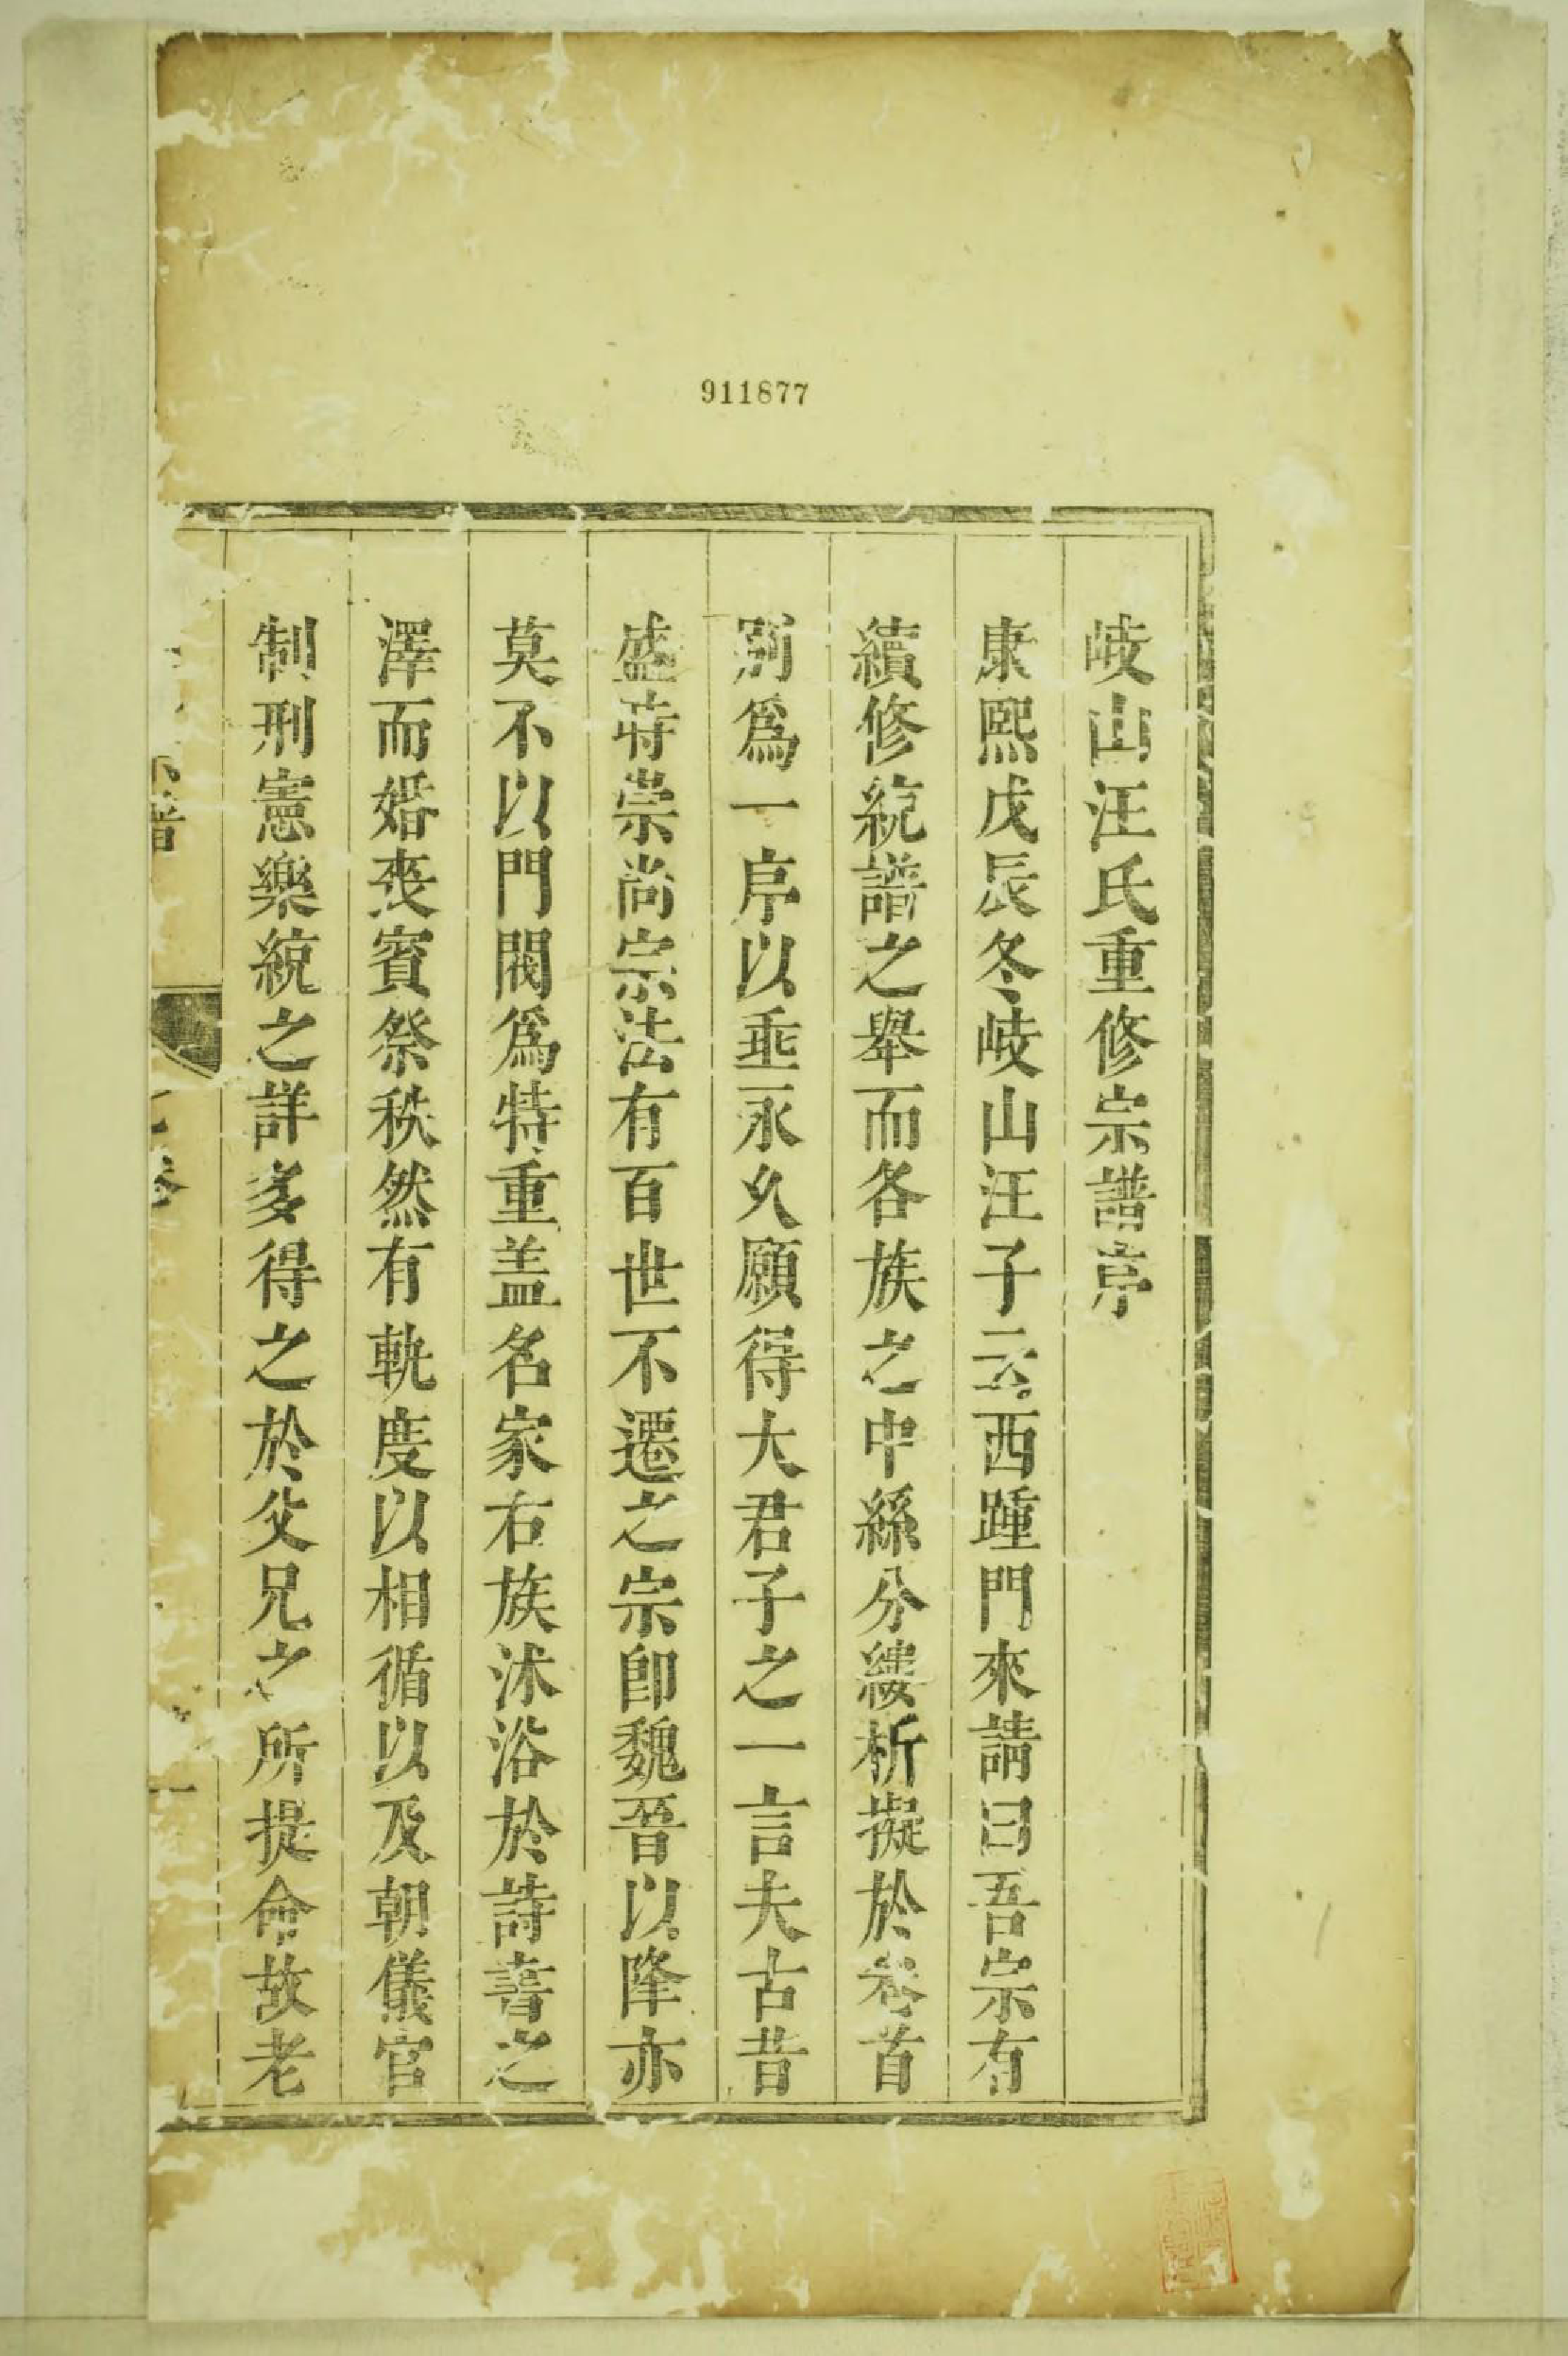 911877
岐山汪氏重修宗譜序
康熙戊辰冬岐山汪子云西踵門來請曰吾宗有
續修統譜之舉而各族之中絲分縷析擬於卷首
別爲一序以垂永久願得大君子之一言夫古昔
盛時崇尚宗法有百世不遷之宗卽魏晉以降亦
莫不以門閥爲特重盖名家右族沐浴於詩書之
澤而婚喪賓祭秩然有軌度以相循以及朝儀官
制刑憲樂統之詳多得之於父兄之所提命故老
譜 卷 一